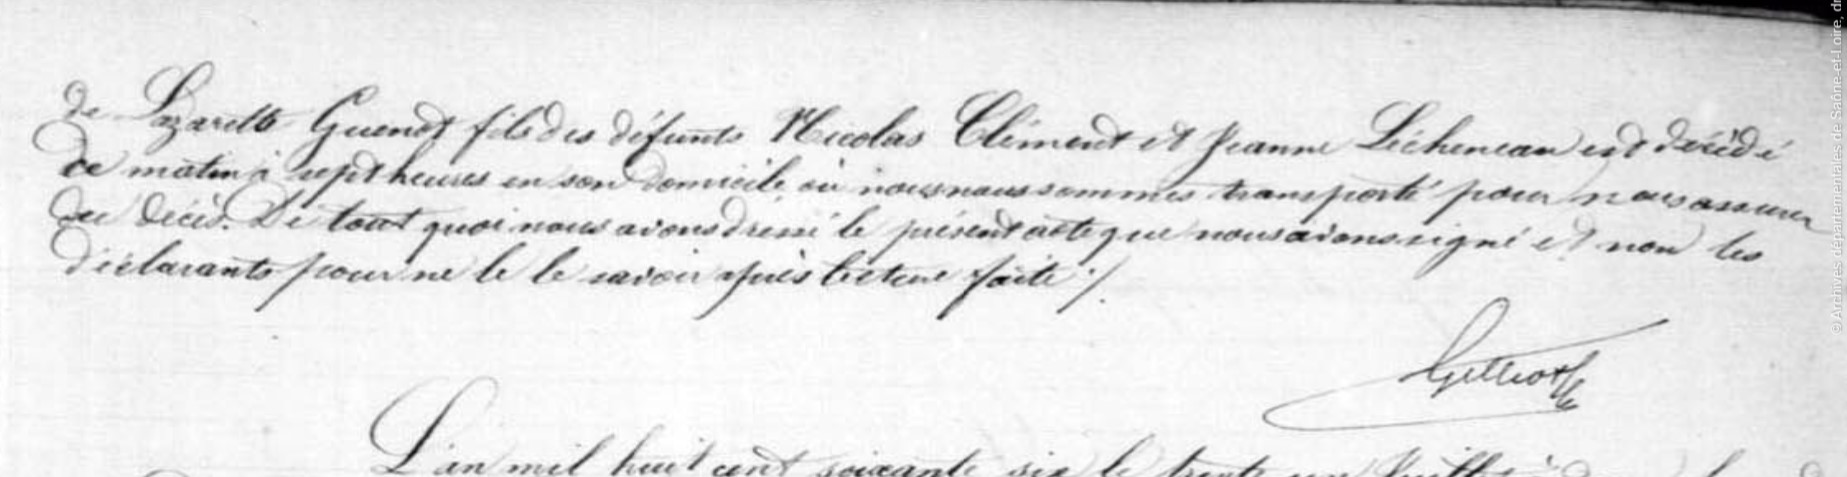 de Lazarette Guenot fils des défunts Nicolas Clément et Jeanne Lécheneau est décédé
ce matin à sept heures en son domicile où nous nous sommes transporté pour nous assurer
du décès. De tout quoi nous avons dressé le présent acte que nous avons signé et non les
déclarants pour ne le le savoir après lecture faite ./.
L'an mil huit cent soixante six le trente un Juillet à
© Archives départementales de Saône-et-Loire, dr